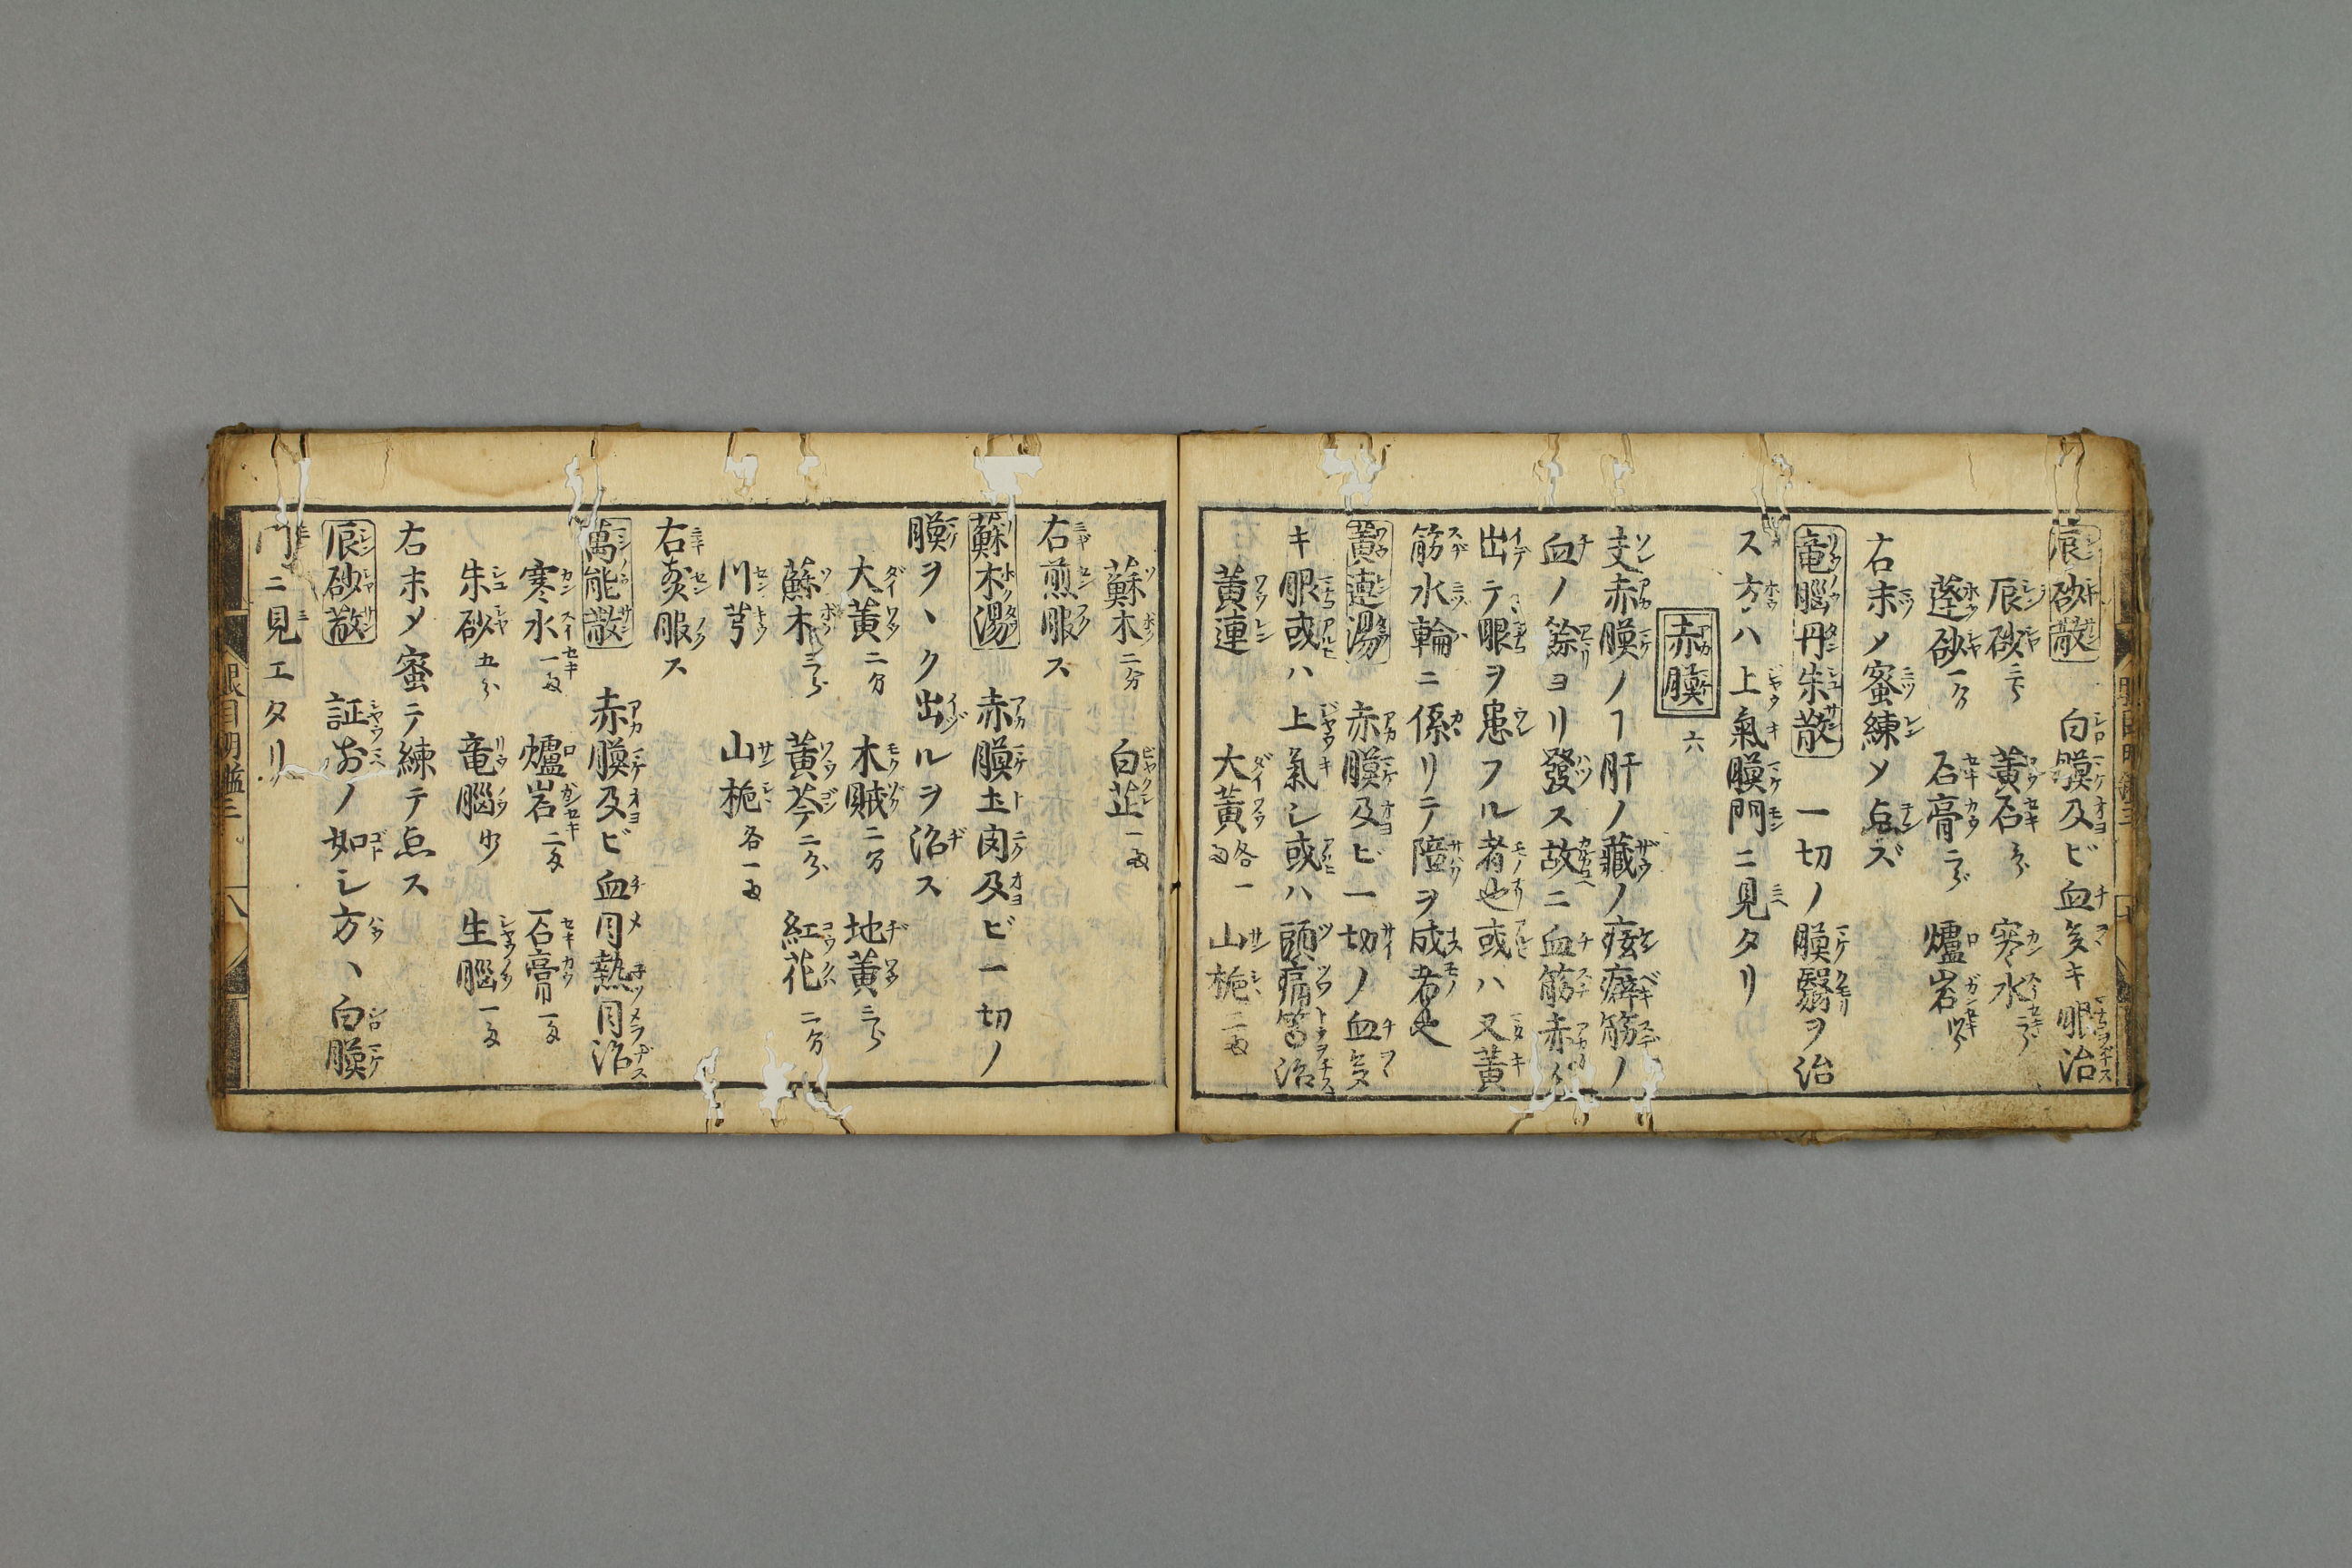 辰砂散 白膜及ビ血多キ眼治
辰砂 黄石 寒水
蓬砂一匁 石膏 爐岩
右末メ蜜練メ点ズ
竜腦丹朱散 一切ノ膜翳ヲ治
ス方ハ上氣膜門ニ見タリ
赤膜 六
夫赤膜ノヿ肝ノ藏ノ痃癖筋ノ
血ノ餘ヨリ發ス故ニ血筋赤
出テ眼ヲ患フル者也或ハ又黄
筋水輪ニ係リテ障ヲ成者也
黄連湯 赤膜及ビ一切ノ血多
キ眼或ハ上氣シ或ハ頭痛等治
黄連 大黄各一 山梔二
蘇木二分 白芷一
右煎服ス
蘇木湯 赤膜ト肉及ビ一切ノ
膜ヲヽク出ルヲ治ス
大黄二匁 木賊二匁 地黄
蘇木 黄芩二分 紅花二分
川芎 山梔各一
右煎服ス
萬能散 赤膜及ビ血目熱目治
寒水一 爐岩二 石膏一
朱砂五分 竜腦少 生腦一
右末メ蜜テ練テ点ス
辰砂散 証前ノ如シ方ヽ白膜
門ニ見エタリ
眼目明鑑三 八